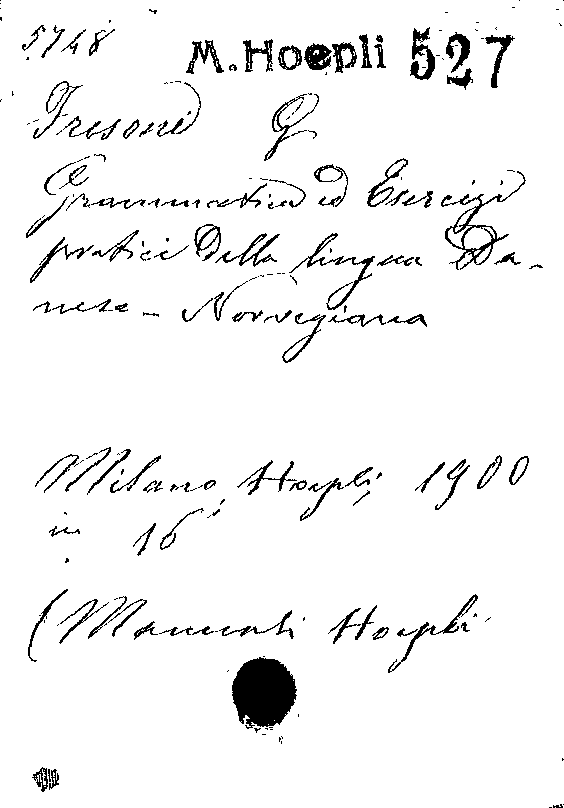 5748 M. Hoepli 527
Fresoni G
Grammatica ed Esercizi
pratici della lingua Da-
nese - Norvegiana
Milano, Hoepli, 1900
in 16°
(Manuali Hoepli